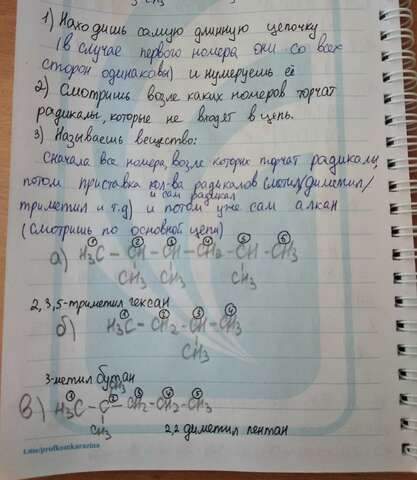 1) Находишь самую длинную цепочку
(в случае первого номера они со всех
сторон одинаковы) и нумеруешь её
2) Смотришь возле каких номеров торчат
радикалы, которые не входят в цепь.
3) Называешь вещество:
сначала все номера, возле которых торчат радикалы,
потом приставка кол-ва радикалов (метил/диметил/
и сам радикал
триметил и т.д) и потом уже сам алкан
(смотришь по основной цепи)
① ② ③ ④ ⑤ ⑥
а) H₃C – CH – CH – CH₂ – CH – CH₃
CH₃ CH₃ CH₃
2,3,5-триметил гексан
① ② ③ ④
б) H₃C – CH₂ – CH – CH₃
CH₃
3-метил бутан
CH₃
① ② ③ ④ ⑤
в) H₃C – C – CH₂ – CH₂ – CH₃
CH₃
2,2 диметил пентан
t.me/profkomkarazina